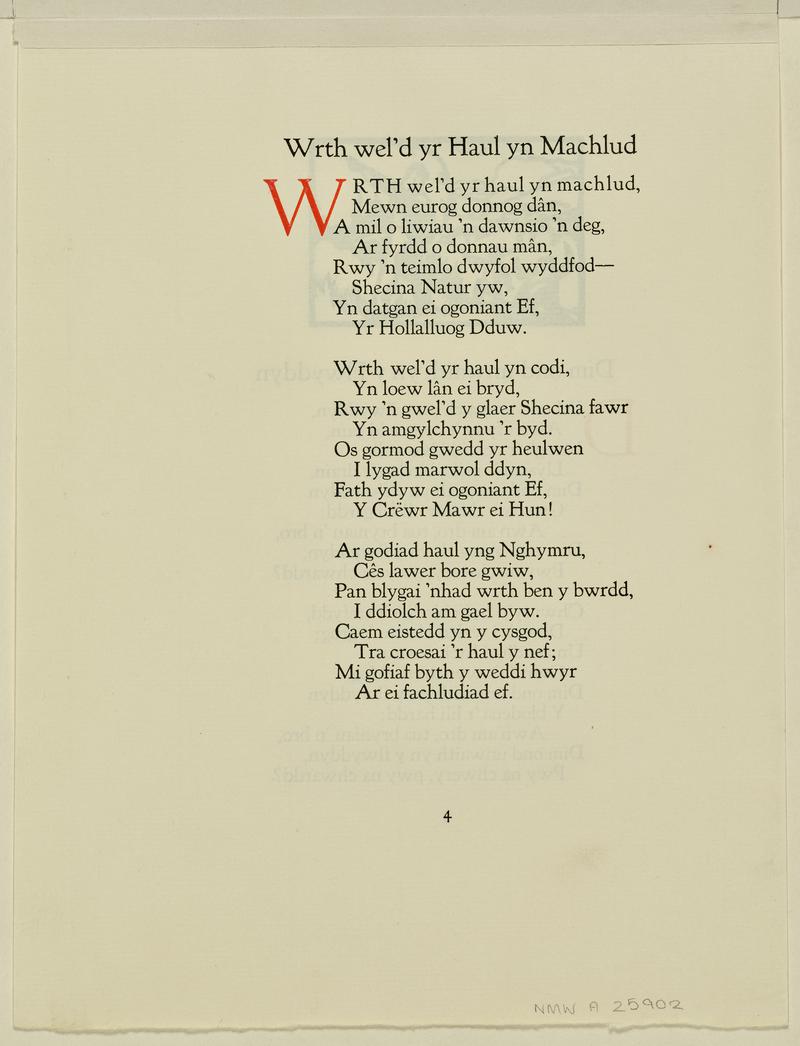 Wrth wel'd yr Haul yn Machlud
WRTH wel'd yr haul yn machlud,
Mewn eurog donnog dân,
A mil o liwiau 'n dawnsio 'n deg,
Ar fyrdd o donnau mân,
Rwy 'n teimlo dwyfol wyddfod—
Shecina Natur yw,
Yn datgan ei ogoniant Ef,
Yr Hollalluog Dduw.
Wrth wel'd yr haul yn codi,
Yn loew lân ei bryd,
Rwy 'n gwel'd y glaer Shecina fawr
Yn amgylchynnu 'r byd.
Os gormod gwedd yr heulwen
I lygad marwol ddyn,
Fath ydyw ei ogoniant Ef,
Y Crëwr Mawr ei Hun!
Ar godiad haul yng Nghymru,
Cês lawer bore gwiw,
Pan blygai 'nhad wrth ben y bwrdd,
I ddiolch am gael byw.
Caem eistedd yn y cysgod,
Tra croesai 'r haul y nef;
Mi gofiaf byth y weddi hwyr
Ar ei fachludiad ef.
4
NMW A 25902